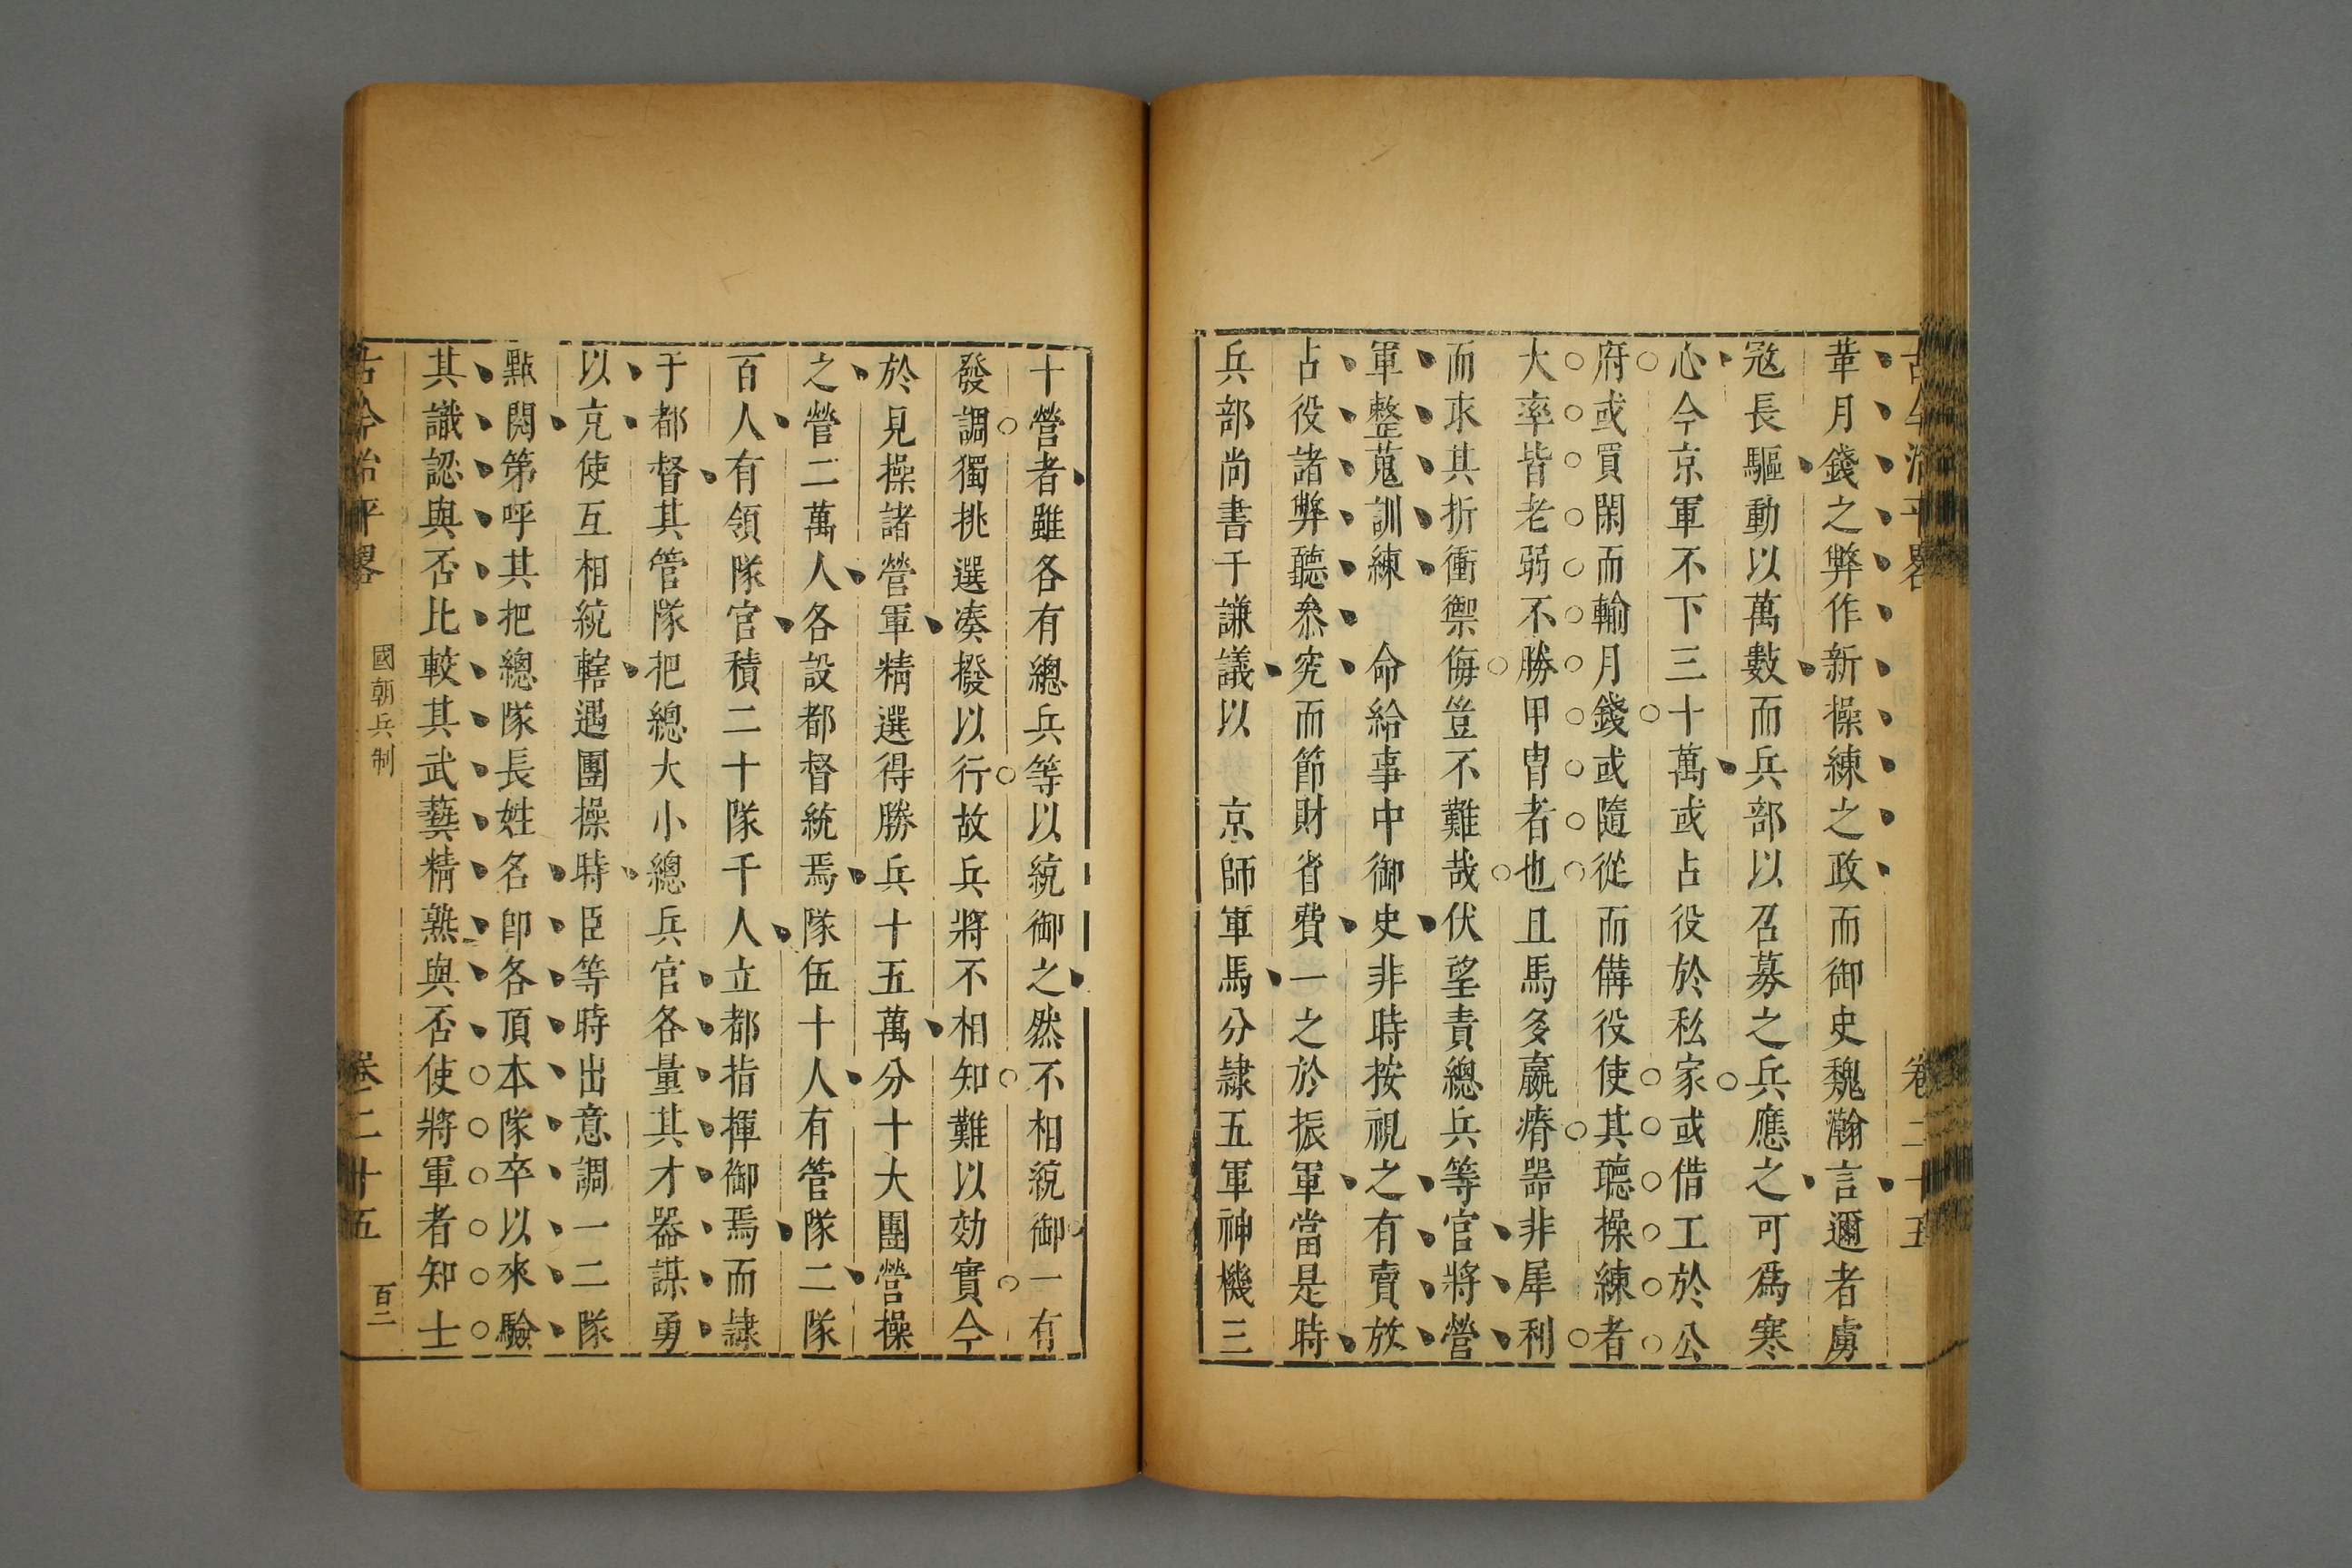 古今治平畧 卷二十五
革月錢之弊作新操練之政而御史魏瀚言邇者虜
寇長驅動以萬數而兵部以召募之兵應之可爲寒
心今京軍不下三十萬或占役於私家或借工於公
府或買閑而輸月錢或隨從而備役使其聽操練者
大率皆老弱不勝甲冑者也且馬多羸瘠器非犀利
而求其折衝禦侮豈不難哉伏望責總兵等官將營
軍整蒐訓練 命給事中御史非時按視之有賣放
占役諸弊聽叅究而節財省費一之於振軍當是時
兵部尚書于謙議以 京師軍馬分隷五軍神機三
十營者雖各有總兵等以統御之然不相統御一有
發調獨挑選凑撥以行故兵將不相知難以効實今
於見操諸營軍精選得勝兵十五萬分十大團營操
之營二萬人各設都督統焉隊伍十人有管隊二隊
百人有領隊官積二十隊千人立都指揮御焉而隷
于都督其管隊把總大小總兵官各量其才器謀勇
以充使互相統轄遇團操時臣等時出意調一二隊
點閱第呼其把總隊長姓名卽各頂本隊卒以來驗
其識認與否比較其武藝精熟與否使將軍者知士
古今治平畧 國朝兵制 卷二十五 百二